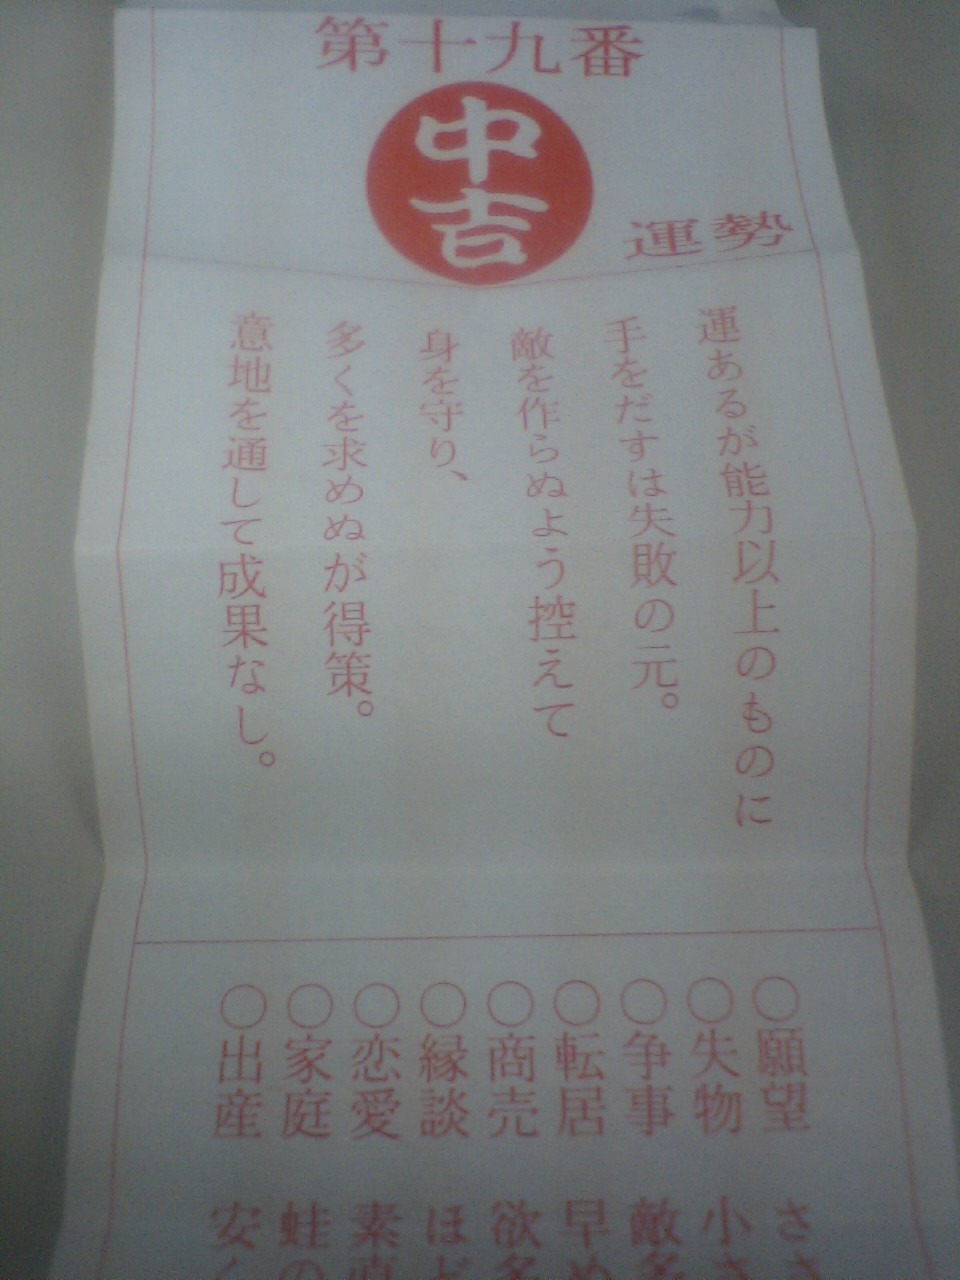 第十九番
中吉
運勢
運あるが能力以上のものに
手をだすは失敗の元。
敵を作らぬよう控えて
身を守り、
多くを求めぬが得策。
意地を通して成果なし。
○願望 ささ
○失物 小さ
○争事 敵多
○転居 早め
○商売 欲多
○縁談 ほど
○恋愛 素直
○家庭 蛙の
○出産 安く